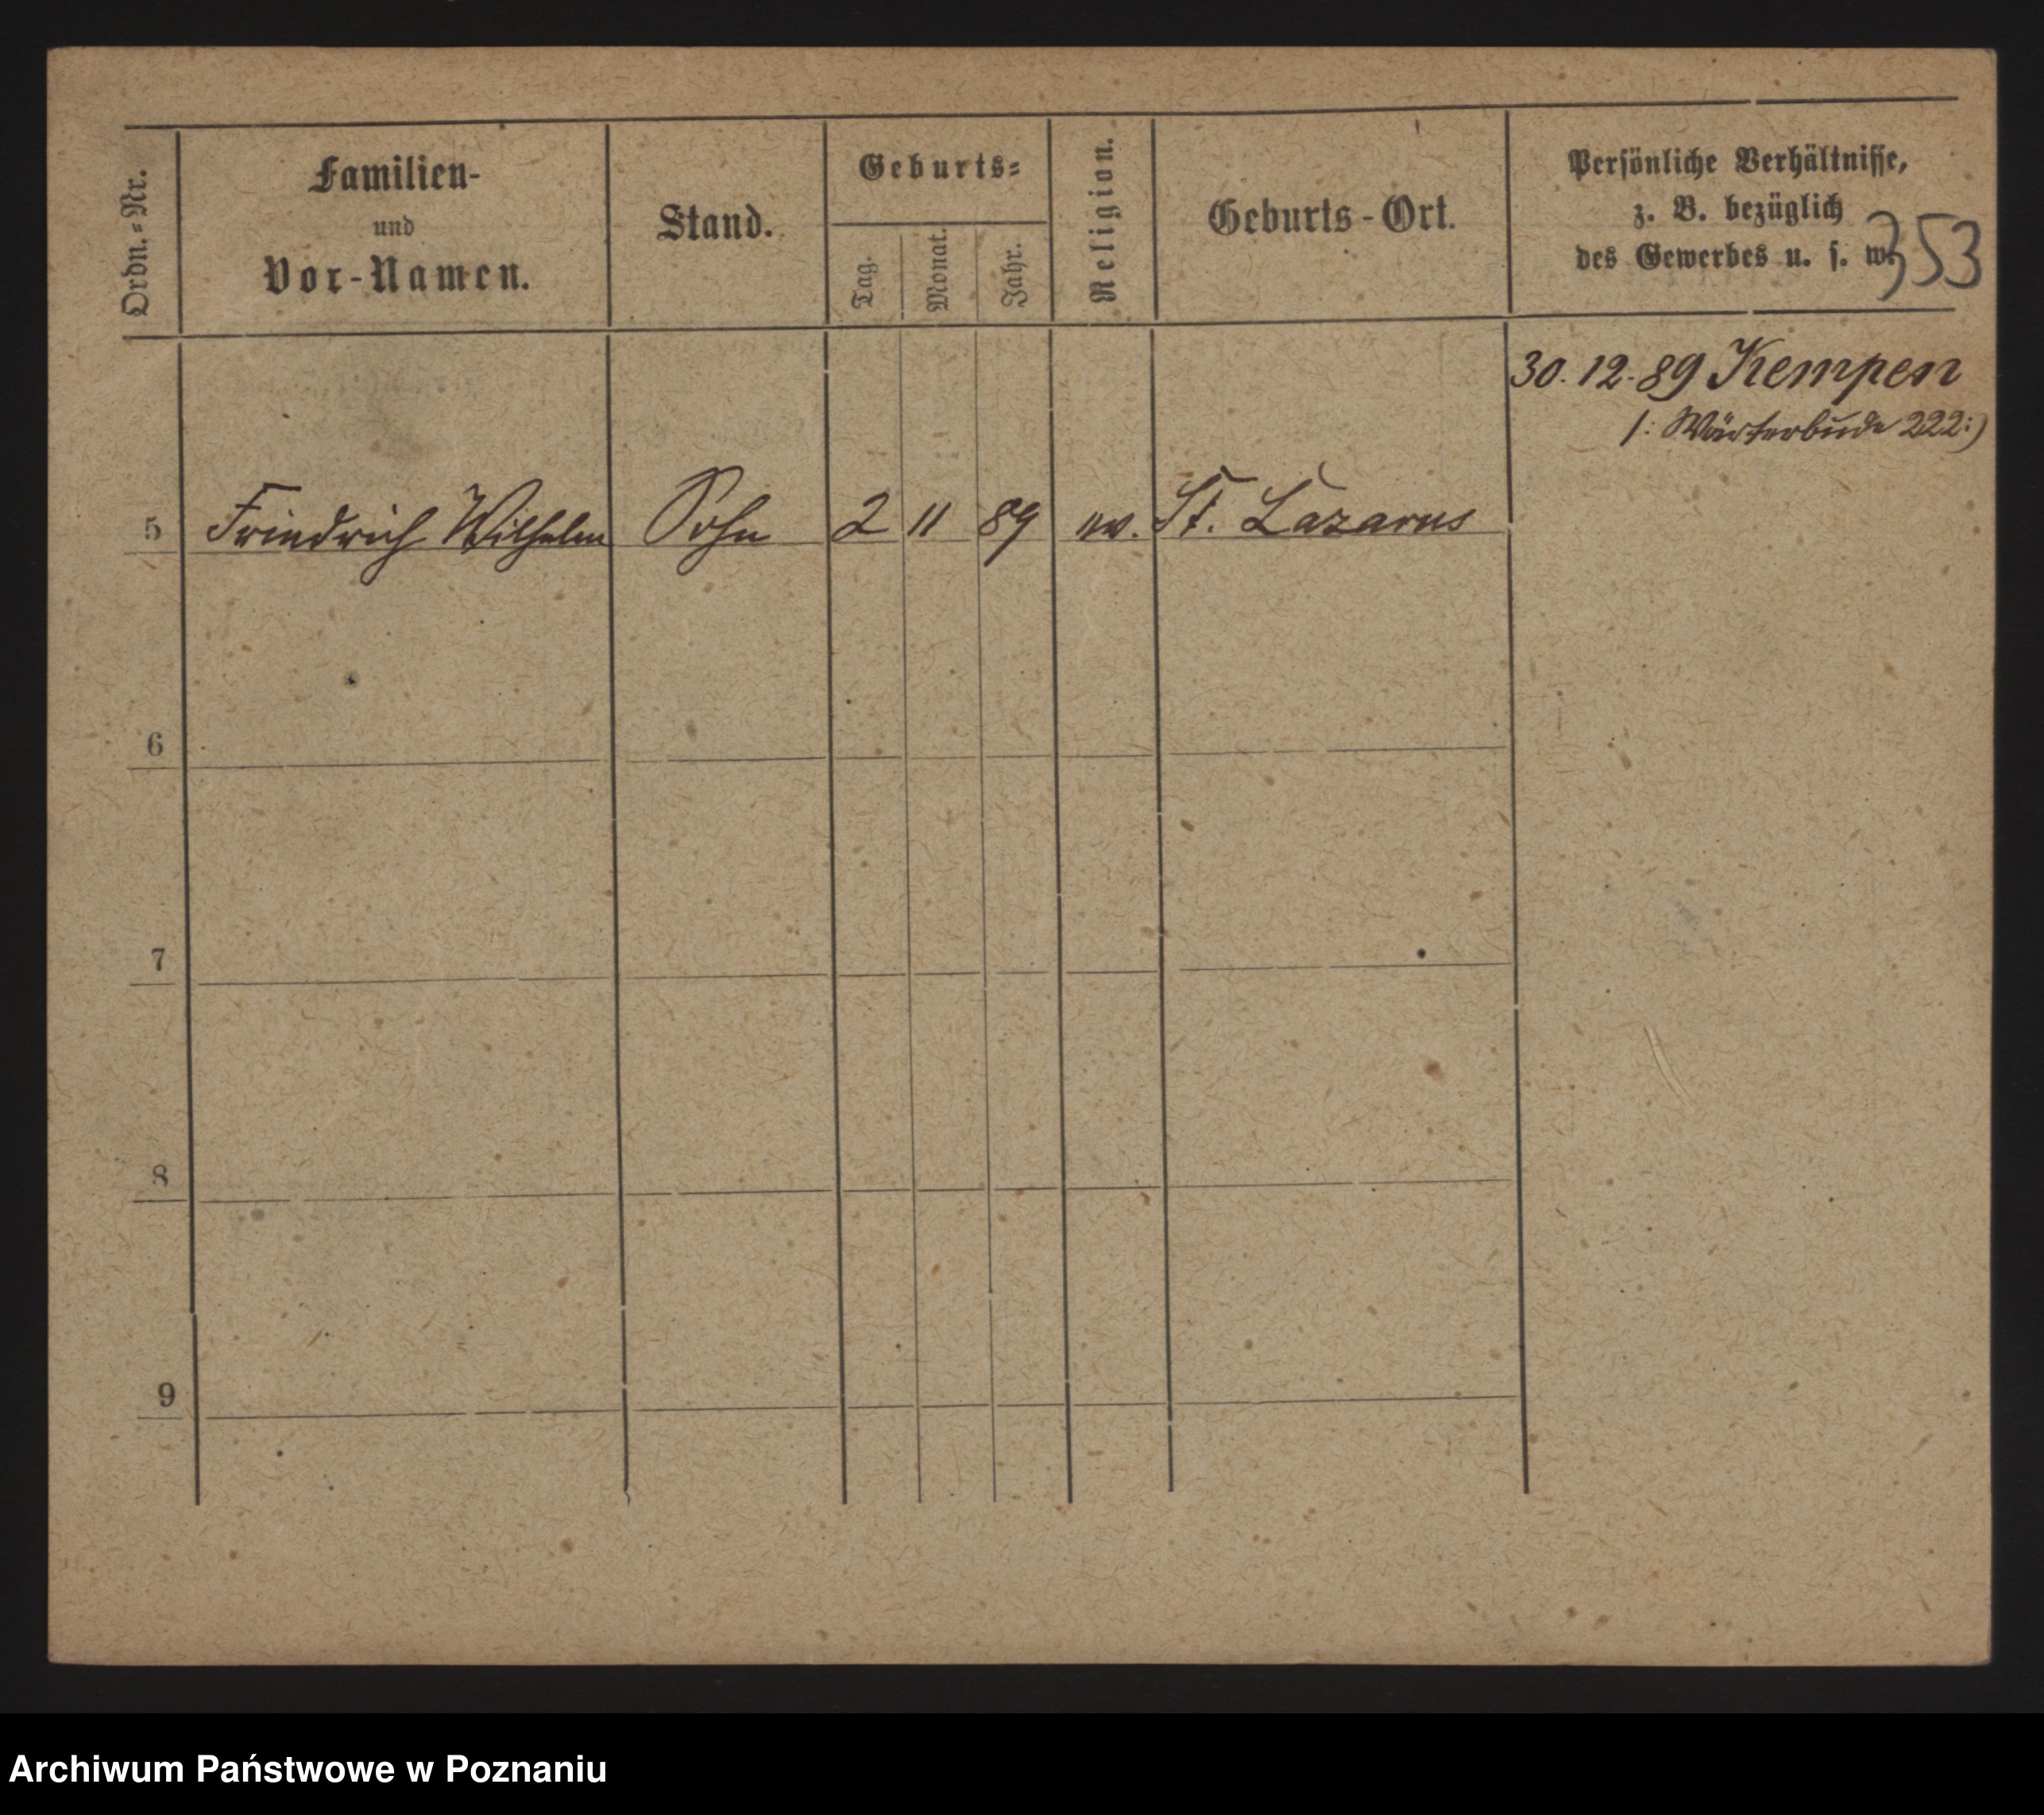 Ordn.-Nr.
Familien-
und
Vor-Namen.
Stand.
Geburts-
Tag.
Monat.
Jahr.
Religion.
Geburts-Ort.
Persönliche Verhältnisse,
z. B. bezüglich
des Gewerbes u. s. w.
353
30. 12. 89 Kempen
/: Wärterbude 222 :)
5 Friedrich Wilhelm Sohn 2 11 89 ev. St. Lazarus
6
7
8
9
Archiwum Państwowe w Poznaniu